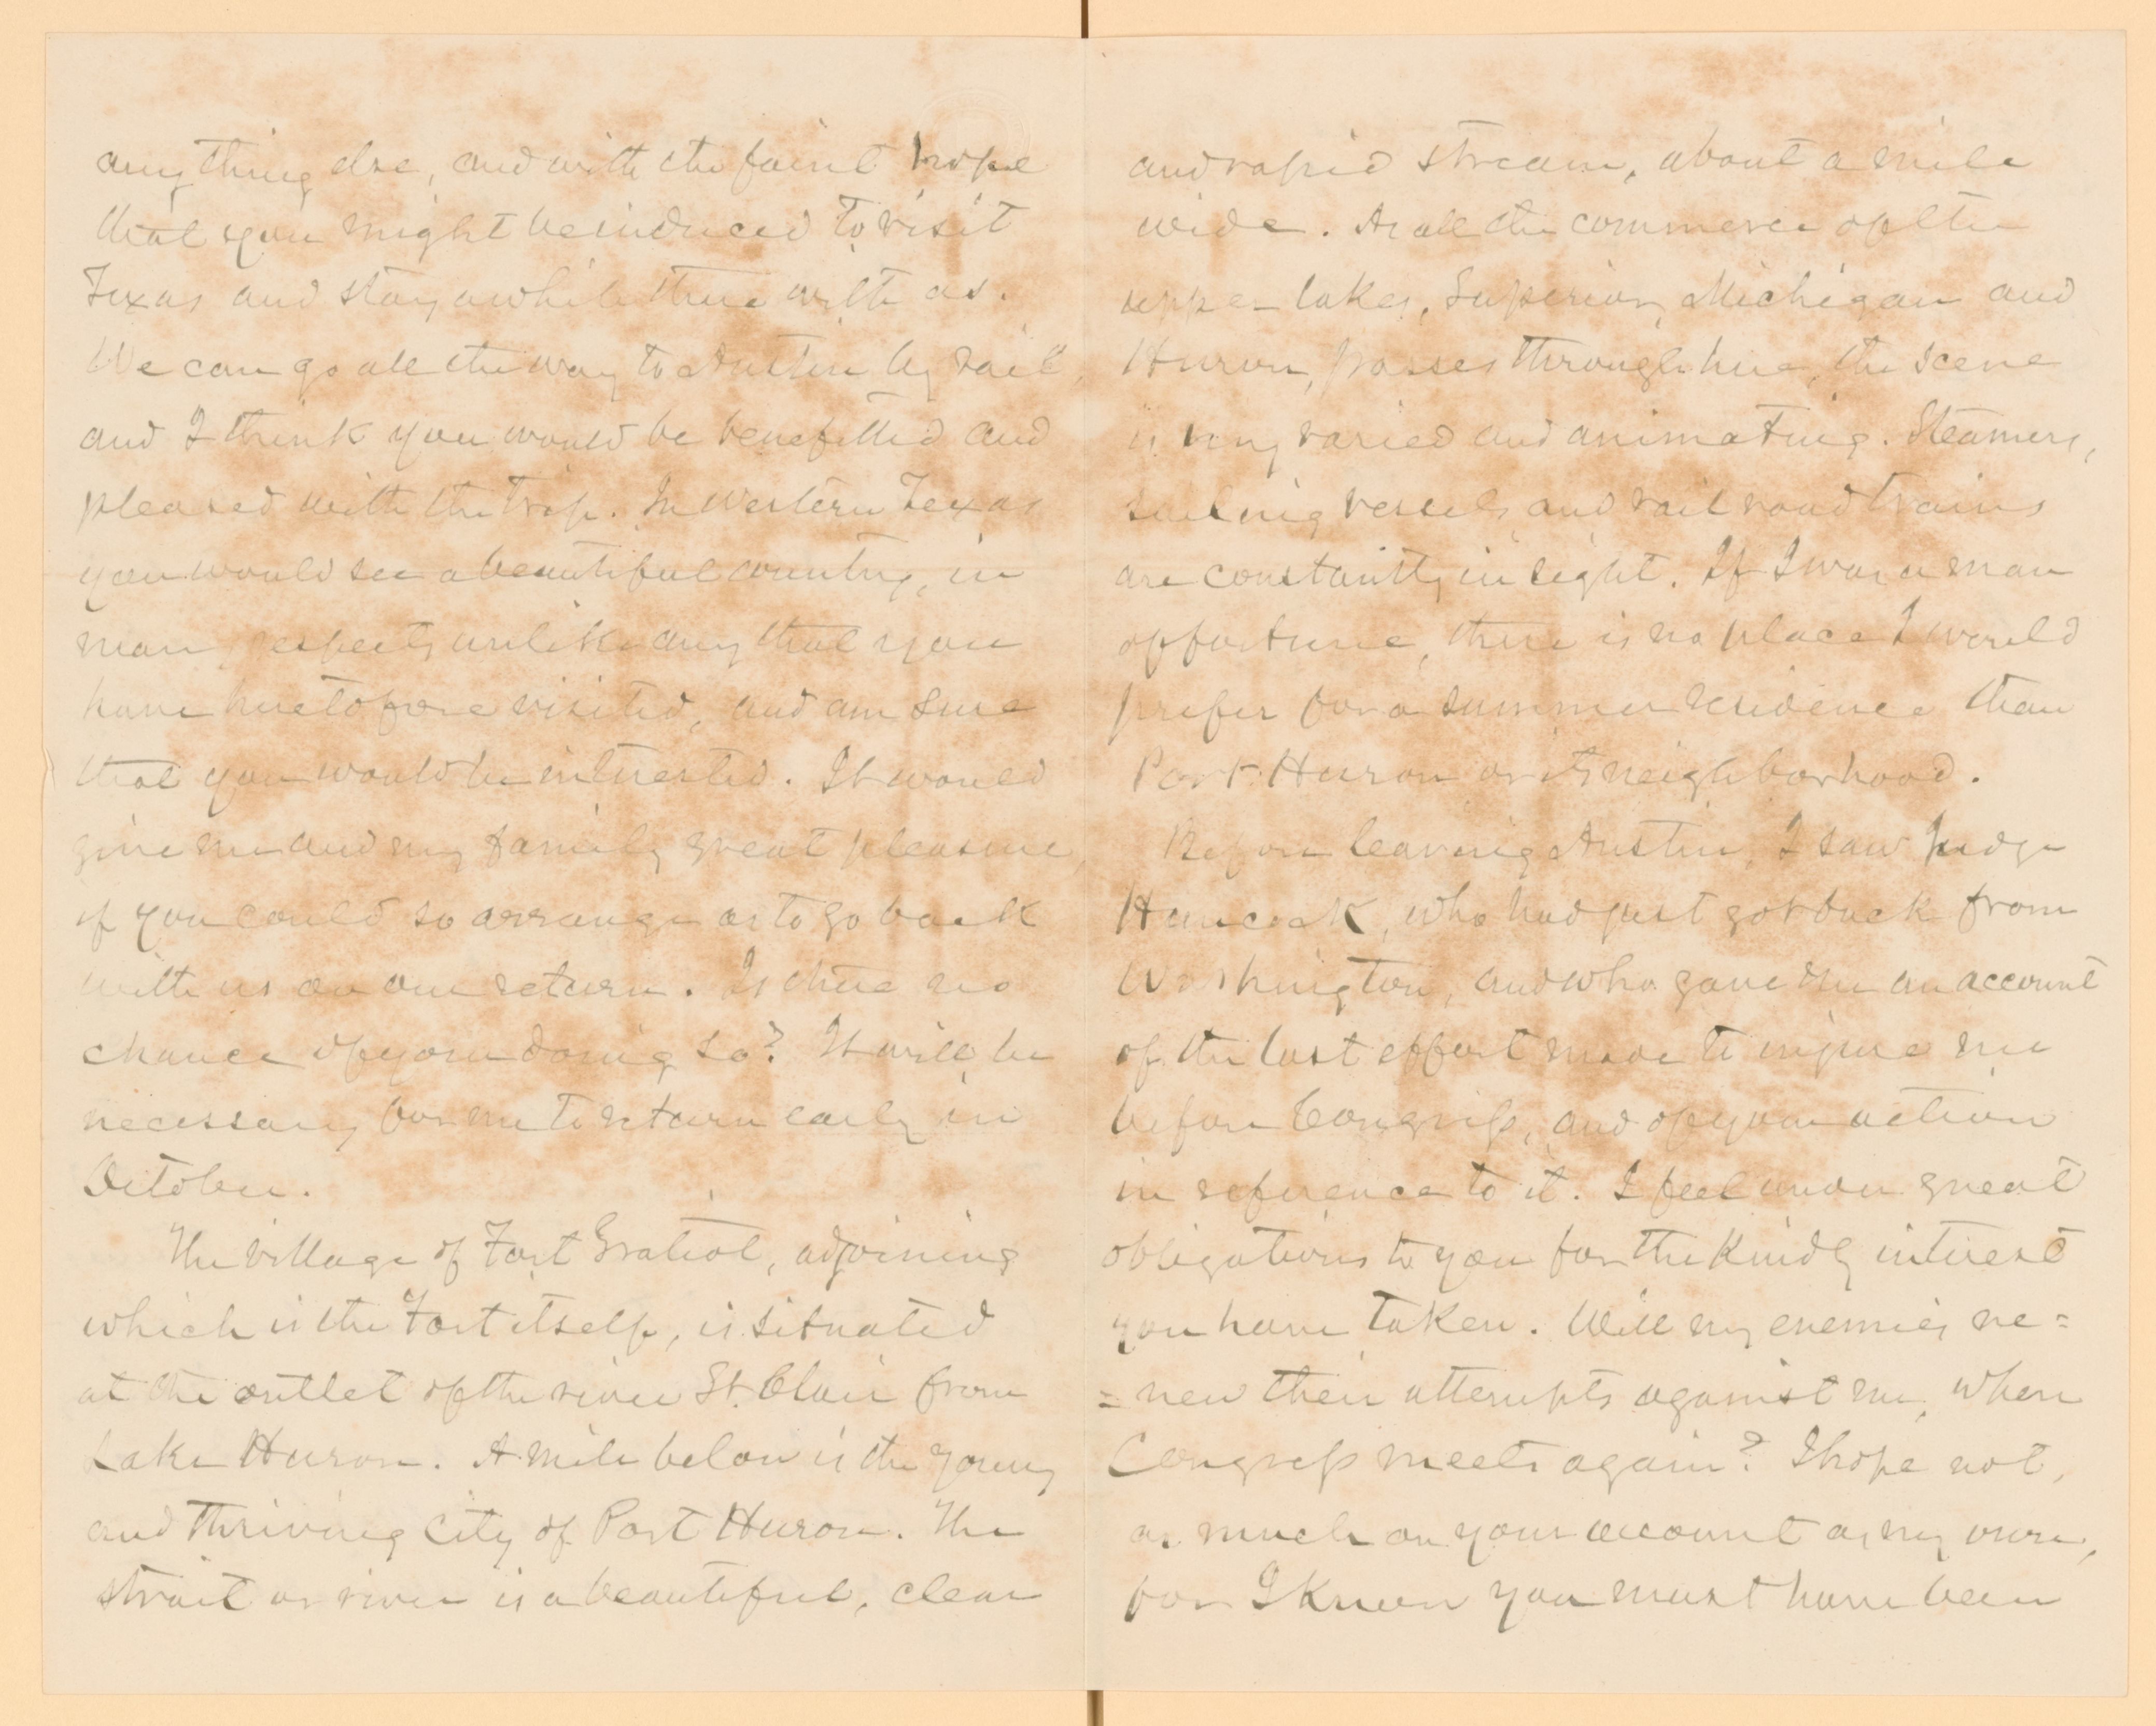 any thing else, and with the faint hope
that you might be induced to visit
Texas and stay awhile there with us.
We can go all the way to Austin by rail,
and I think you would be benefitted and
pleased with the trip. In Western Texas
you would see a beautiful country, in
many respects unlike any that you
have heretofore visited, and am sure
that you would be interested. It would
give me and my family great pleasure,
if you could so arrange as to go back
with us on our return. Is there no
chance of your doing so? It will be
necessary for me to return early in
October.
The village of Fort Gratiot, adjoining
which is the Fort itself, is situated
at the outlet of the river St. Clair from
Lake Huron. A mile below is the young
and thriving city of Port Huron. The
strait or river is a beautiful, clear
and rapid stream, about a mile
wide. As all the commerce of the
upper lakes, Superior, Michigan and
Huron, passes through here, the scene
is very varied and animating. Steamers,
sailing vessels and rail road trains
are constantly in sight. If I was a man
of fortune, there is no place I would
prefer for a summer residence than
Port Huron or its neighborhood.
Before leaving Austin, I saw Judge
Hancock, who had just got back from
Washington, and who gave me an account
of the last effort made to injure me
before Congress, and of your action
in reference to it. I feel under great
obligations to you for the kindly interest
you have taken. Will my enemies re=
=new their attempts against me, when
Congress meets again? I hope not,
as much on your account as my own,
for I know you must have been